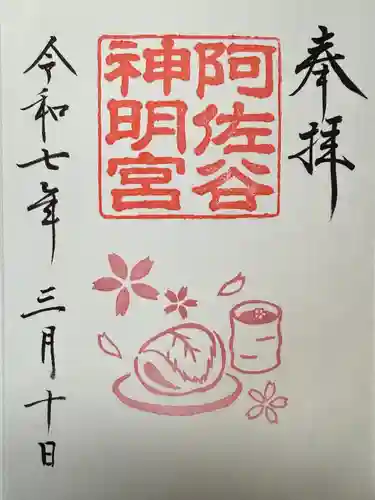 奉拝
阿佐谷
神明宮
令和七年 三月十日